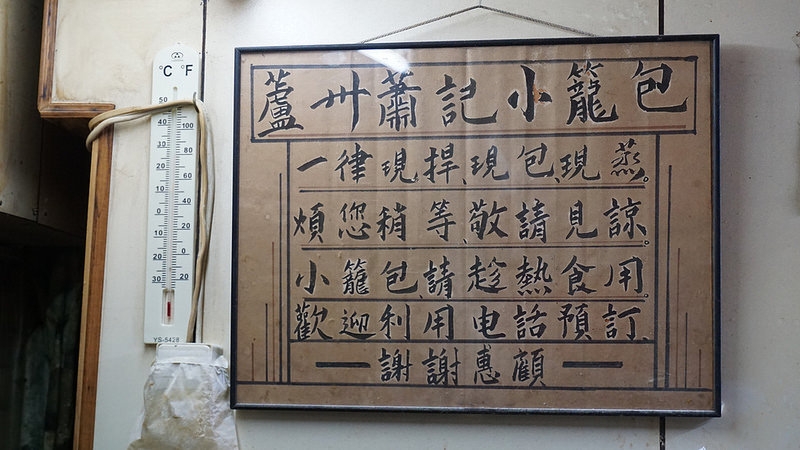 蘆卅蕭記小籠包
一律現捍、現包、現蒸。
煩您稍等、敬請見諒。
小籠包、請趁熱食用。
歡迎利用电話預訂、
謝謝惠顧
°C °F
50
40 100
30 80
20 60
10 40
0
10 20
20 0
30 20
YS-5428